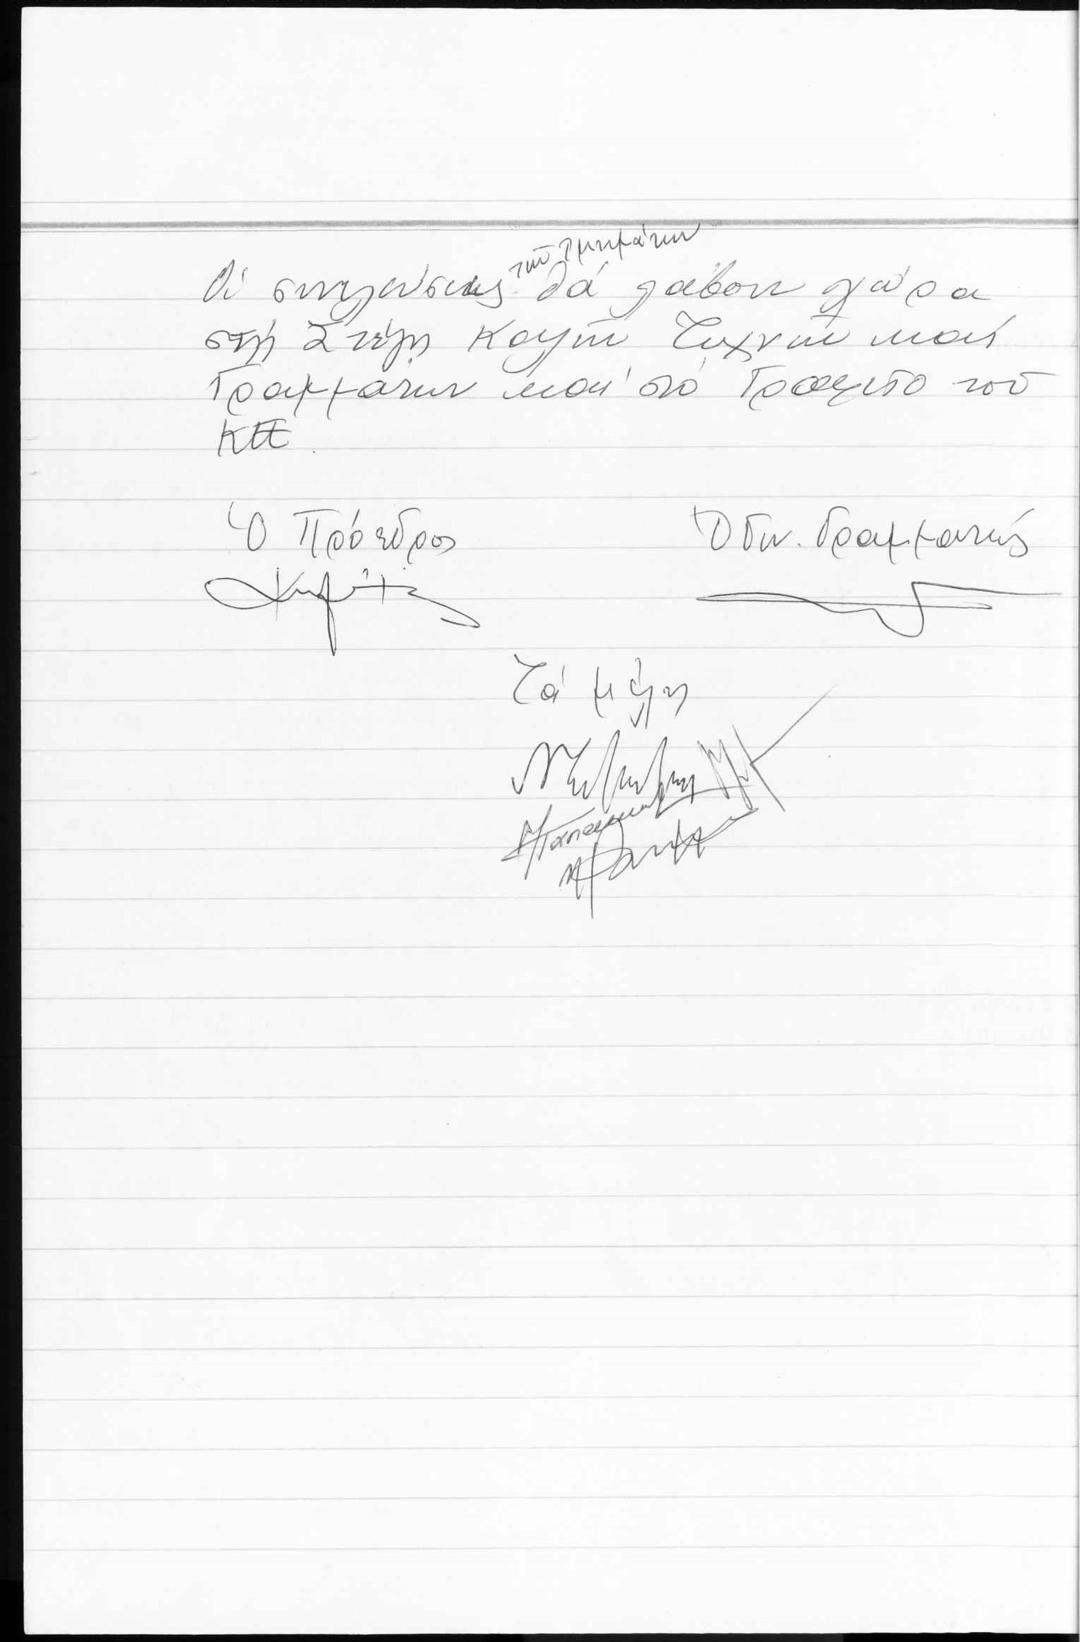 Οἱ συνελεύσεις τῶν Τμημάτων θά λάβουν χώρα
στή Στέγη Καλῶν Τεχνῶν καί
Γραμμάτων καί στό Γραφεῖο τοῦ
ΚΠΕ.
Ὁ Πρόεδρος
Ὁ Γεν. Γραμματεύς
Τά μέλη